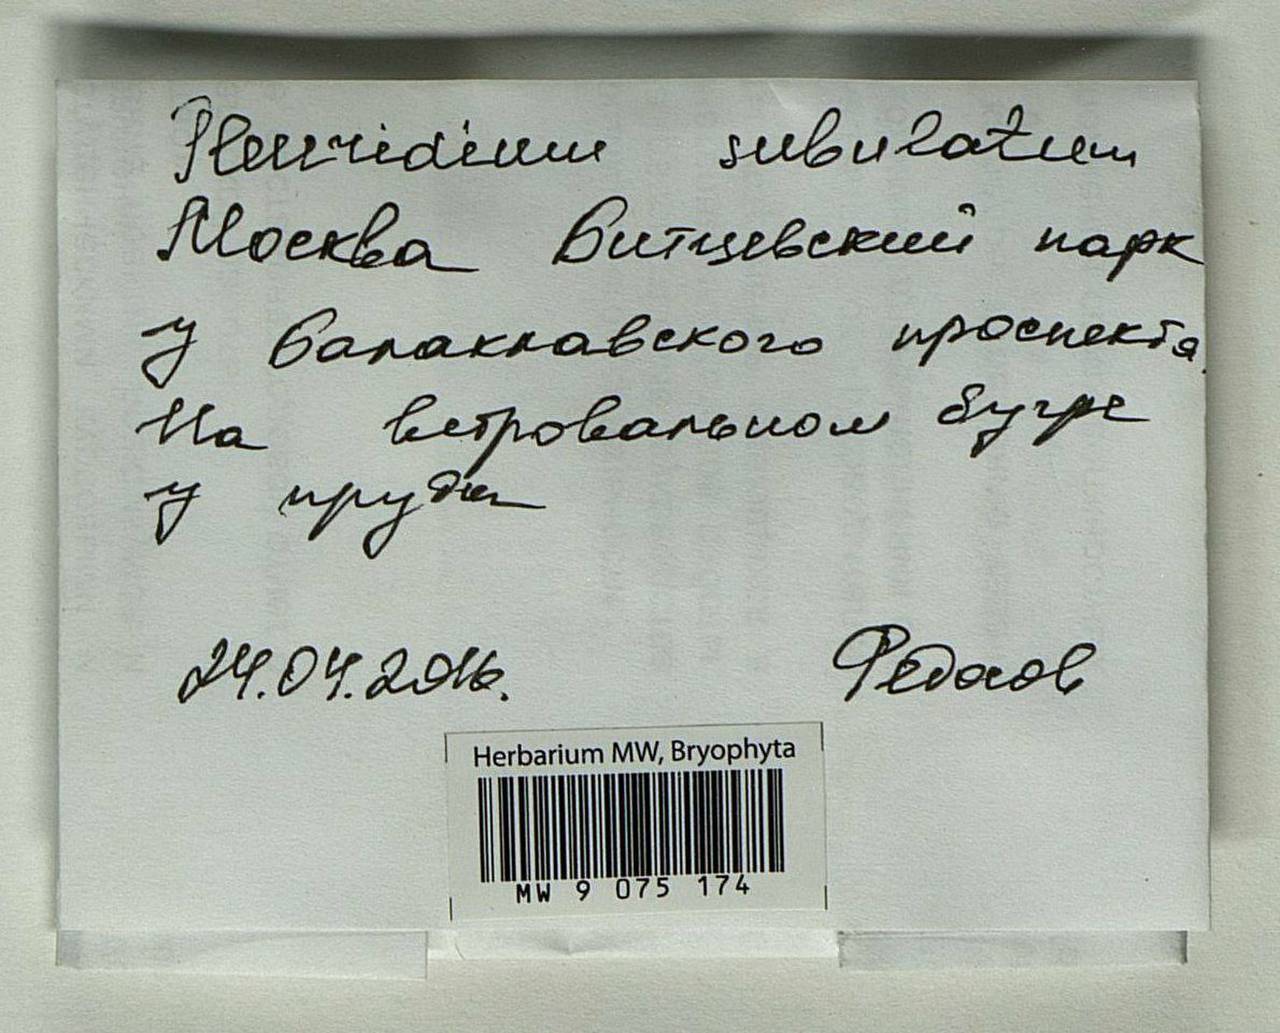 Pleuridium subulatum
Москва Битцевский парк
у Балаклавского проспекта.
На ветровальном бугре
у пруда
24.04.2016.
Федосов
Herbarium MW, Bryophyta
MW 9 075 174